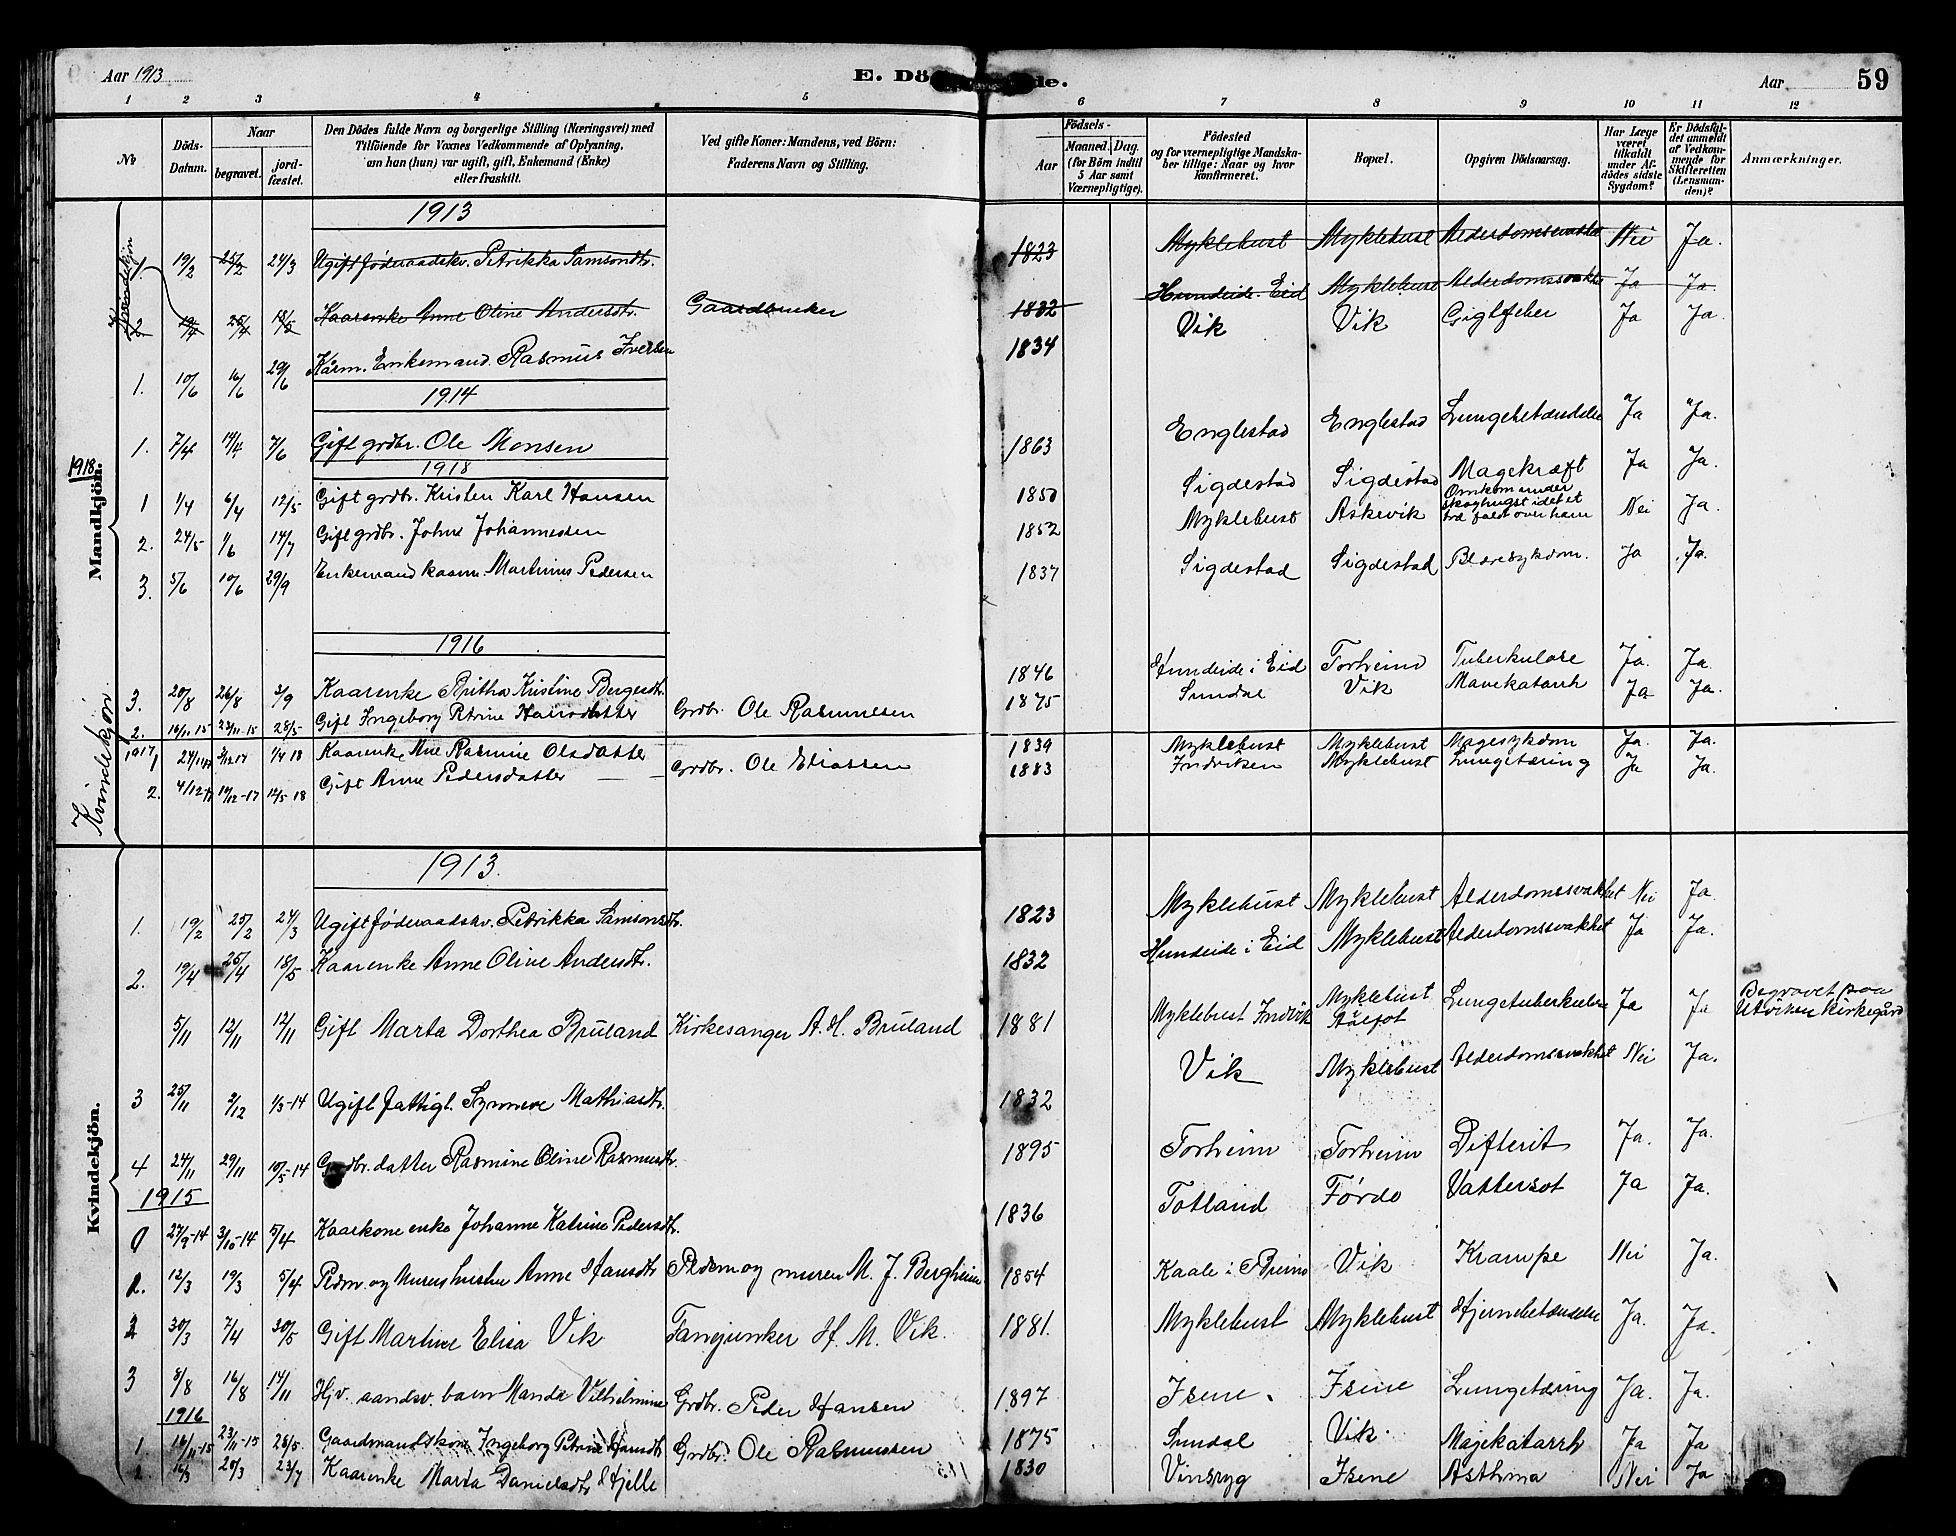 Aar 1913
E. Dö de.
Aar 59
1 2 3 4 5 6 7 8 9 10 11 12
No
Döds-Datum.
Naar
begravet.
jord-fæstet.
Den Dödes fulde Navn og borgerlige Stilling (Næringsvei) med
Tilföiende for Voxnes Vedkommende af Oplysning,
om han (hun) var ugift, gift, Enkemand (Enke)
eller fraskilt.
Ved gifte Koner: Mandens, ved Börn:
Faderens Navn og Stilling.
Födsels-
Aar
Maaned. Dag.
(for Börn indtil
5 Aar samt
Værnepligtige).
Födested
og for værnepligtige Mandska-
ber tillige: Naar og hvor
konfirmeret.
Bopæl.
Opgiven Dödsaarsag.
Har Læge
været
tilkaldt
under Af-
dödes sidste
Sygdom?
Er Dödsfal-
det anmeldt
af Vedkom-
mende for
Skifteretten
(Lensman-
den)?
Anmærkninger.
Kvindekjön
1918
Mandkjön.
1913
1. 19/2 25/2 24/3 Ugift føderaadskv. Petrikka Samsondtr. 1823 Myklebust Myklebust Alderdomssvakhet Nei Ja.
2 19/4 25/4 18/5 Kaarenke Anne Oline Andersdtr. Gaardbruker 1832 Hundeide. Eid Myklebust Alderdomssvakht Ja Ja.
1. 10/6 16/6 29/6 Kårm. Enkemand. Rasmus Iversen 1834 Vik Vik Gigtfeber Ja Ja.
1914
1. 7/4 14/4 7/6 Gift grdbr. Ole Monsen 1863 Englestad Englestad Lungebetændelse Ja Ja.
1918
1 1/4 6/4 12/5 Gift grdbr. Kristen Karl Hansen 1850 Sigdestad Sigdestad Magekræft Ja Ja.
2. 24/5 1/6 14/7 Gift grdbr. Johns Johannessen 1852 Myklebust Askevik Omkom under skoghugst idet et træ faldt over ham Nei Ja.
3. 5/6 10/6 29/9 Enkemand kaarm. Martinus Pedersen 1837 Sigdestad Sigdestad Blæresykdom. Ja Ja.
Kvindekjön.
1916
3. 20/8 26/8 3/9 Kaarenke Britha Kristine Bergesdtr. 1846 Hundeide i Eid Torheim Tuberkulose Ja. Ja.
2. 16/11-15 23/11-15 28/5 Gift Ingeborg Petrine Hansdatter Grdbr. Ole Rasmussen 1875 Sundal Vik Mavekatarrh Ja Ja.
1917
1 24/11 17 Kaarenke Ane Rasmine Olsdatter 1/4 18 1839 Myklebust Myklebust Magesykdom Ja. Ja.
2. 4/12 17 14/12-17 12/5-18 Gift Anne Pedersdatter Grdbr. Ole Eliassen 1883 Indviken Myklebust Lungetæring Ja Ja.
Kvindekjön.
1913.
1. 19/2 25/2 24/3 Ugift føderaadskv. Petrikka Samsonsdtr. 1823 Myklebust Myklebust Alderdomssvakhet Nei Ja
2. 19/4 25/4 18/5 Kaarenke Anne Oline Andersdtr. 1832 Hundeide i Eid Myklebust Alderdomssvakhet Ja Ja.
5/11 12/11 12/11 Gift Marta Dorthea Bruland Kirkesanger A. H. Bruland 1881 Myklebust Indvik Myklebust Aalfot Lungetuberkulose Ja Ja Begravet paa Utviken kirkegård
3 25/11 2/12 1/3-14 Ugift fattigl. Synneve Mathiasdtr. 1832 Vik Myklebust Alderdomssvakhet Nei Ja.
4 24/11 29/11 10/5-14 Grdbr. datter Rasmine Oline Rasmusdtr. 1895 Torheim Torheim Difterit Ja. Ja.
1915
27/9-14 3/10-14 5/4 Kaarkone enke Johanne Katrine Pedersdtr. 1836 Totland Førde Vattersot Ja Ja.
2. 12/3 19/3 5/4 Pldm. og murers hustru Anne Hansdtr Pldsm og murer M. J. Bergheim 1854 Kaale i Breim Vik Krampe Nei Ja.
2 30/3 7/4 30/5 Gift Martine Elisa Vik Fanejunker H. M. Vik. 1881. Myklebust Myklebust Hjernebetændelse Ja. Ja.
3 8/8 16/8 14/11 Hjv. aandsv. barn Manda Vilhelmine Grdbr. Peder Hansen 1897 Isene. Isene Lungetæring Ja. Ja.
1916
1 16/11-15 23/11-15 28/5. Gaardmandskone Ingeborg Petrine Hansdtr Grdbr. Ole Rasmussen 1875 Sundal Vik. Majekatarrh Ja Ja
2 14/3 20/3 23/7 Kaarenke Marta Danielsdtr Hjelle 1830 Vinsryg Isene Asthma Nei Ja